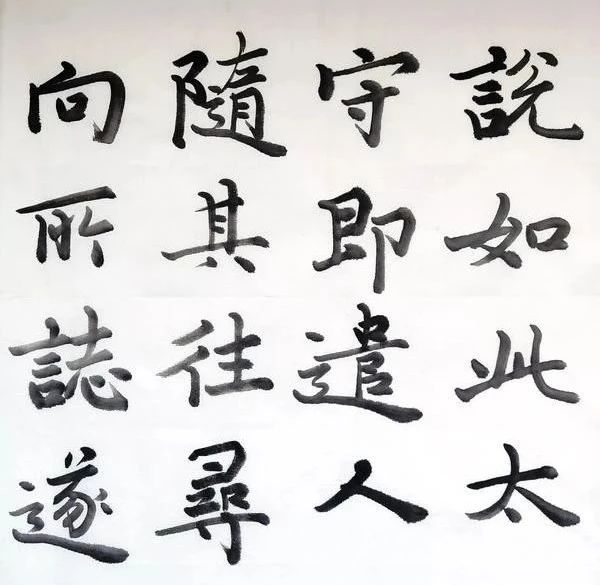 說如此太
守即遣人
隨其往尋
向所誌遂